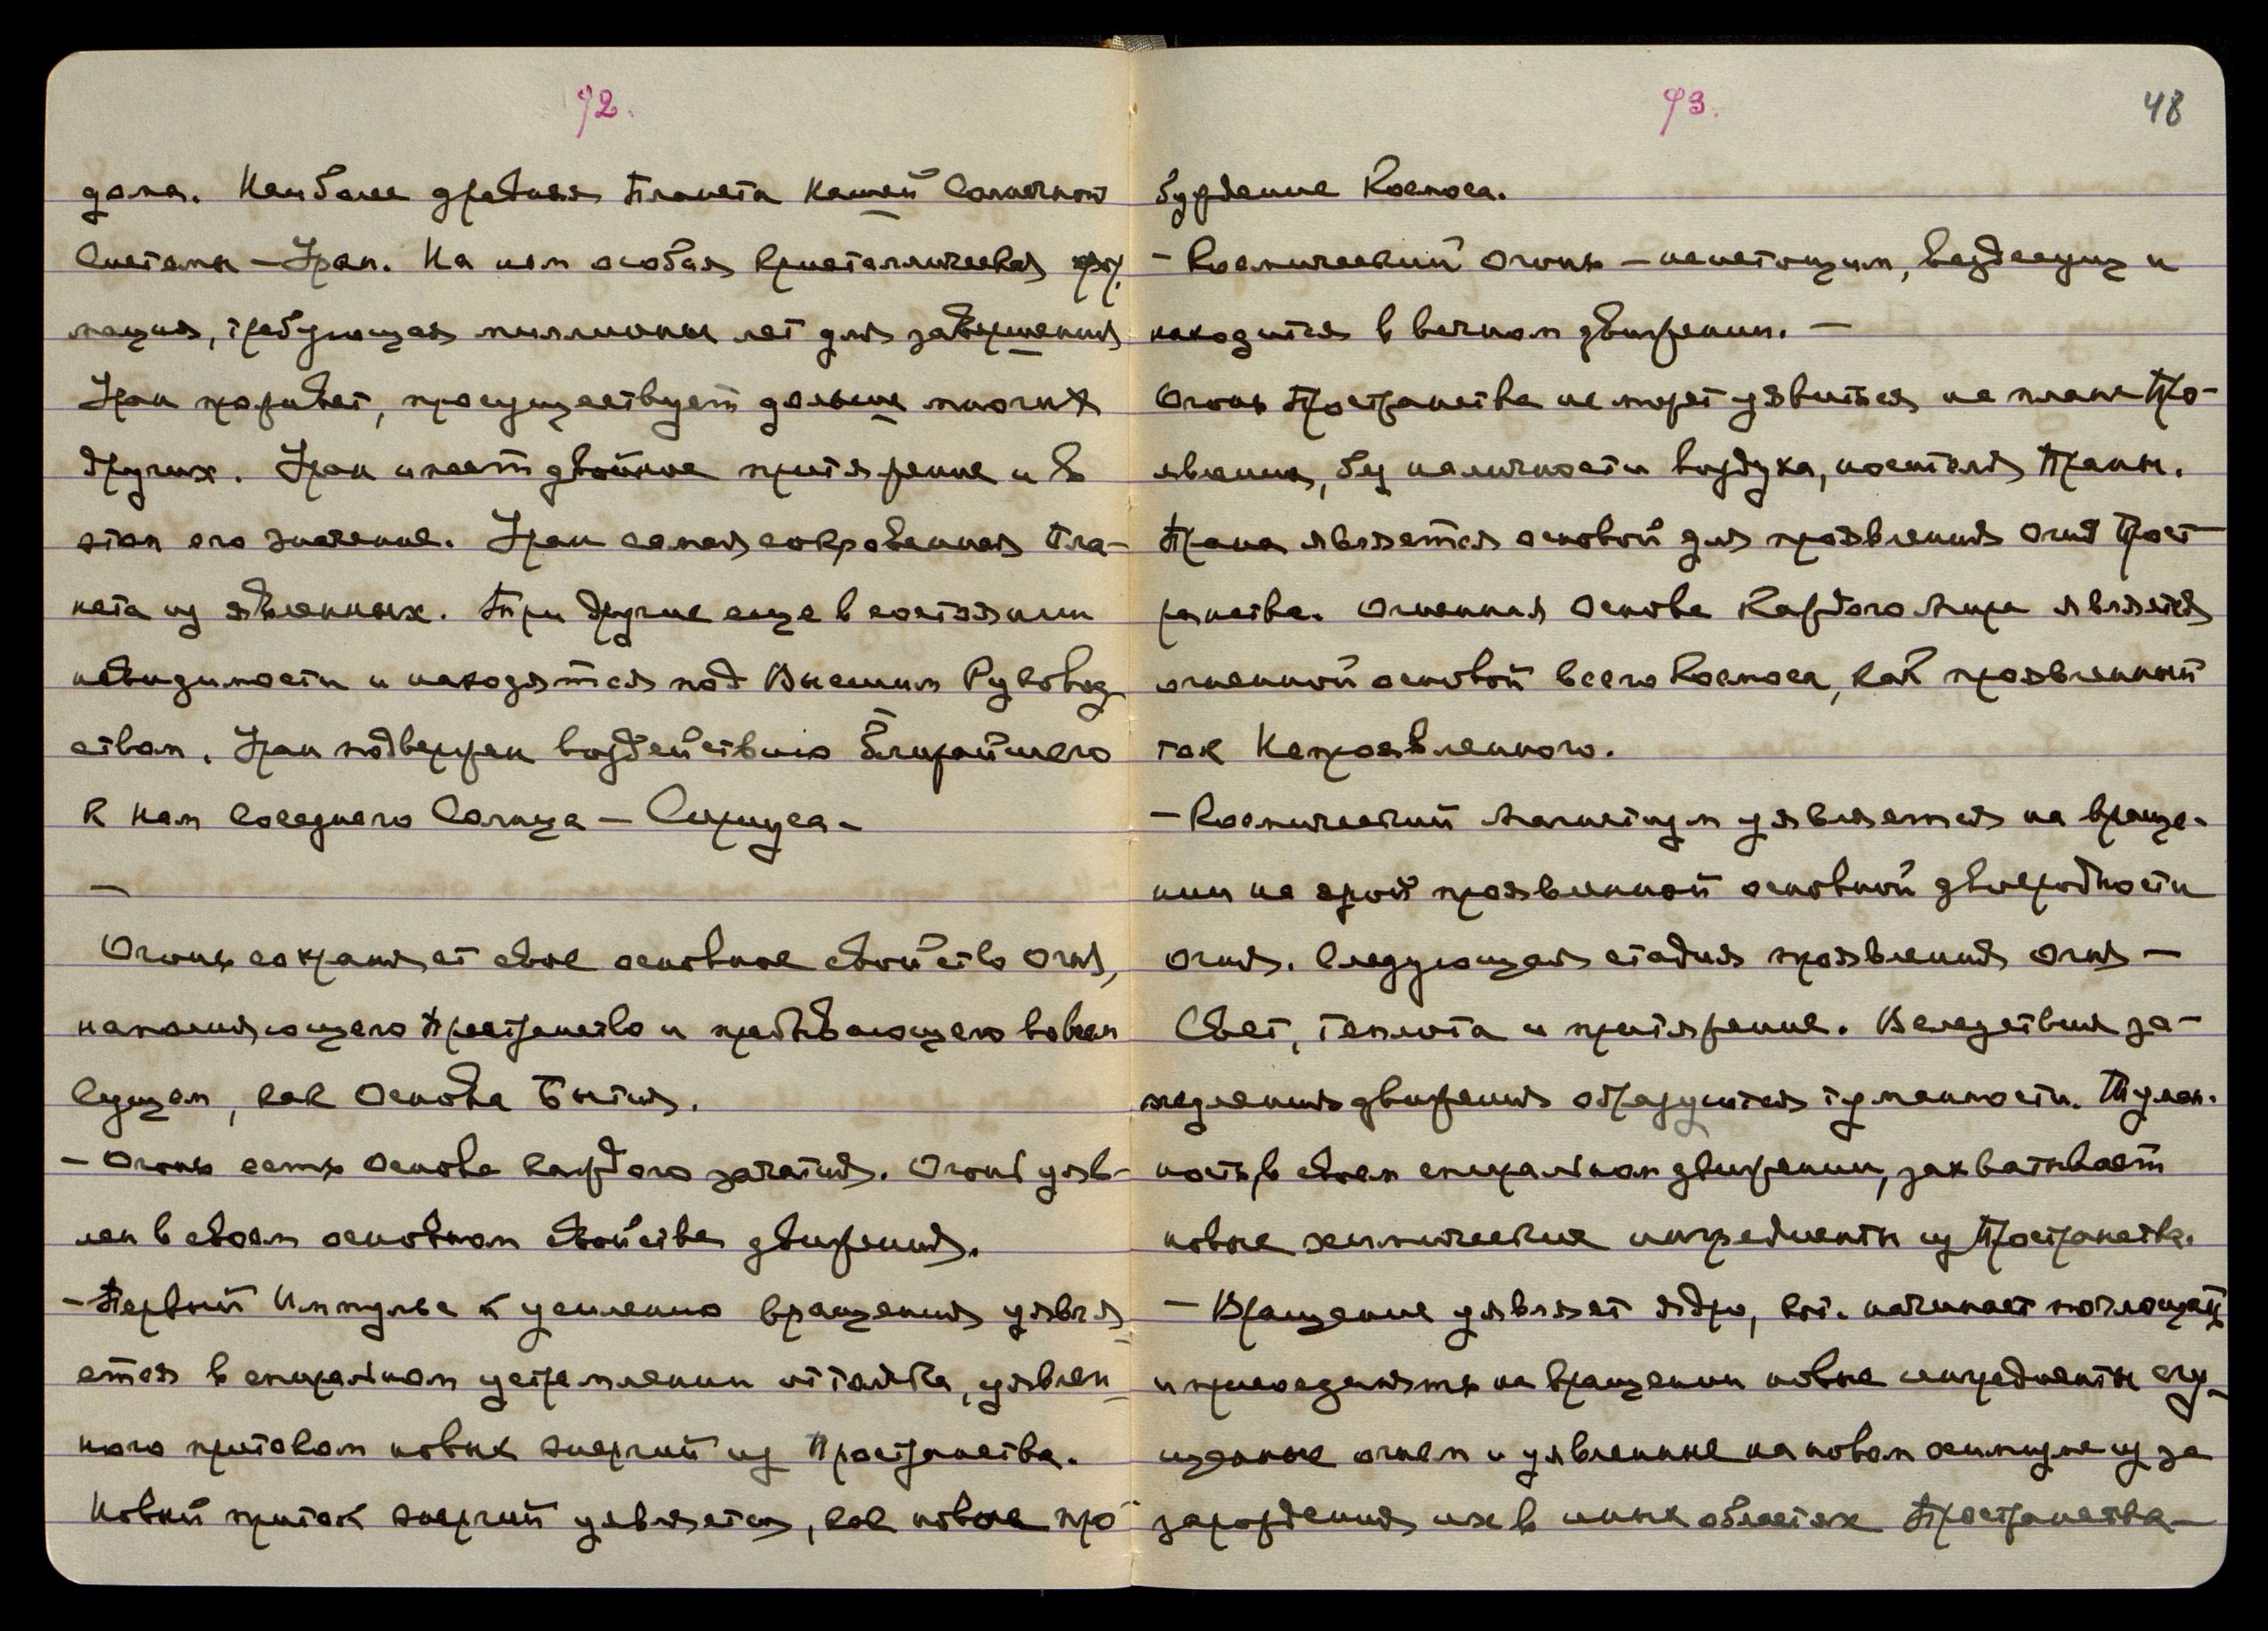 92.
дома. Наиболее древняя Планета нашей Солнечной
Системы – Уран. На нем особая кристаллическая фор.
мация, требующая миллионы лет для завершения
Уран проживет, просуществует дольше многих
других. Уран имеет двойное притяжение и в
этом его значение. Уран самая сокровенная Пла-
нета из явленных. Три другие еще в состоянии
невидимости и находятся под Высшим Руковод
ством. Уран подвержен воздействию ближайшего
к нам соседнего Солнца – Сириуса –
—
Огонь сохраняет свое основное свойство Огня,
наполняющего Пространство и пребывающего во всем
Сущем, как Основа Бытия.
– Огонь есть Основа каждого зачатия. Огонь уяв-
лен в своем основном свойстве движения.
– Первый Импульс к усилению вращения уявля
ется в спиральном устремлении от толчка, уявлен
ного притоком новых энергий из Пространства.
Новый приток энергий уявляется, как новое про
93.
48
буждение Космоса.
– Космический Огонь – неистощим, вездесущ и
находится в вечном движении. –
Огонь Пространства не может уявиться на плане Про-
явления, без наличности воздуха, носителя Праны.
Прана является основой для проявления Огня Прост
ранства. Огненная Основа Каждого Мира является
огненной основой всего Космоса, как проявленный
так Непроявленного.
– Космический Магнетизм уявляется на враще-
нии на ярой проявленной основной двуродности
Огня. Следующая стадия проявления Огня –
Свет, теплота и притяжение. Вследствия за-
медления движения образуются туманности. Туман-
ность в своем спиральном движении, захватывает
новые химические ингредиенты из Пространства.
– Вращение уявляет ядро, кот. начинает поглощать
и присоединять на вращении новые ингредиенты сгу
щенные огнем и уявленные на новом химизме из за
зарождения их в иных областях Пространства –